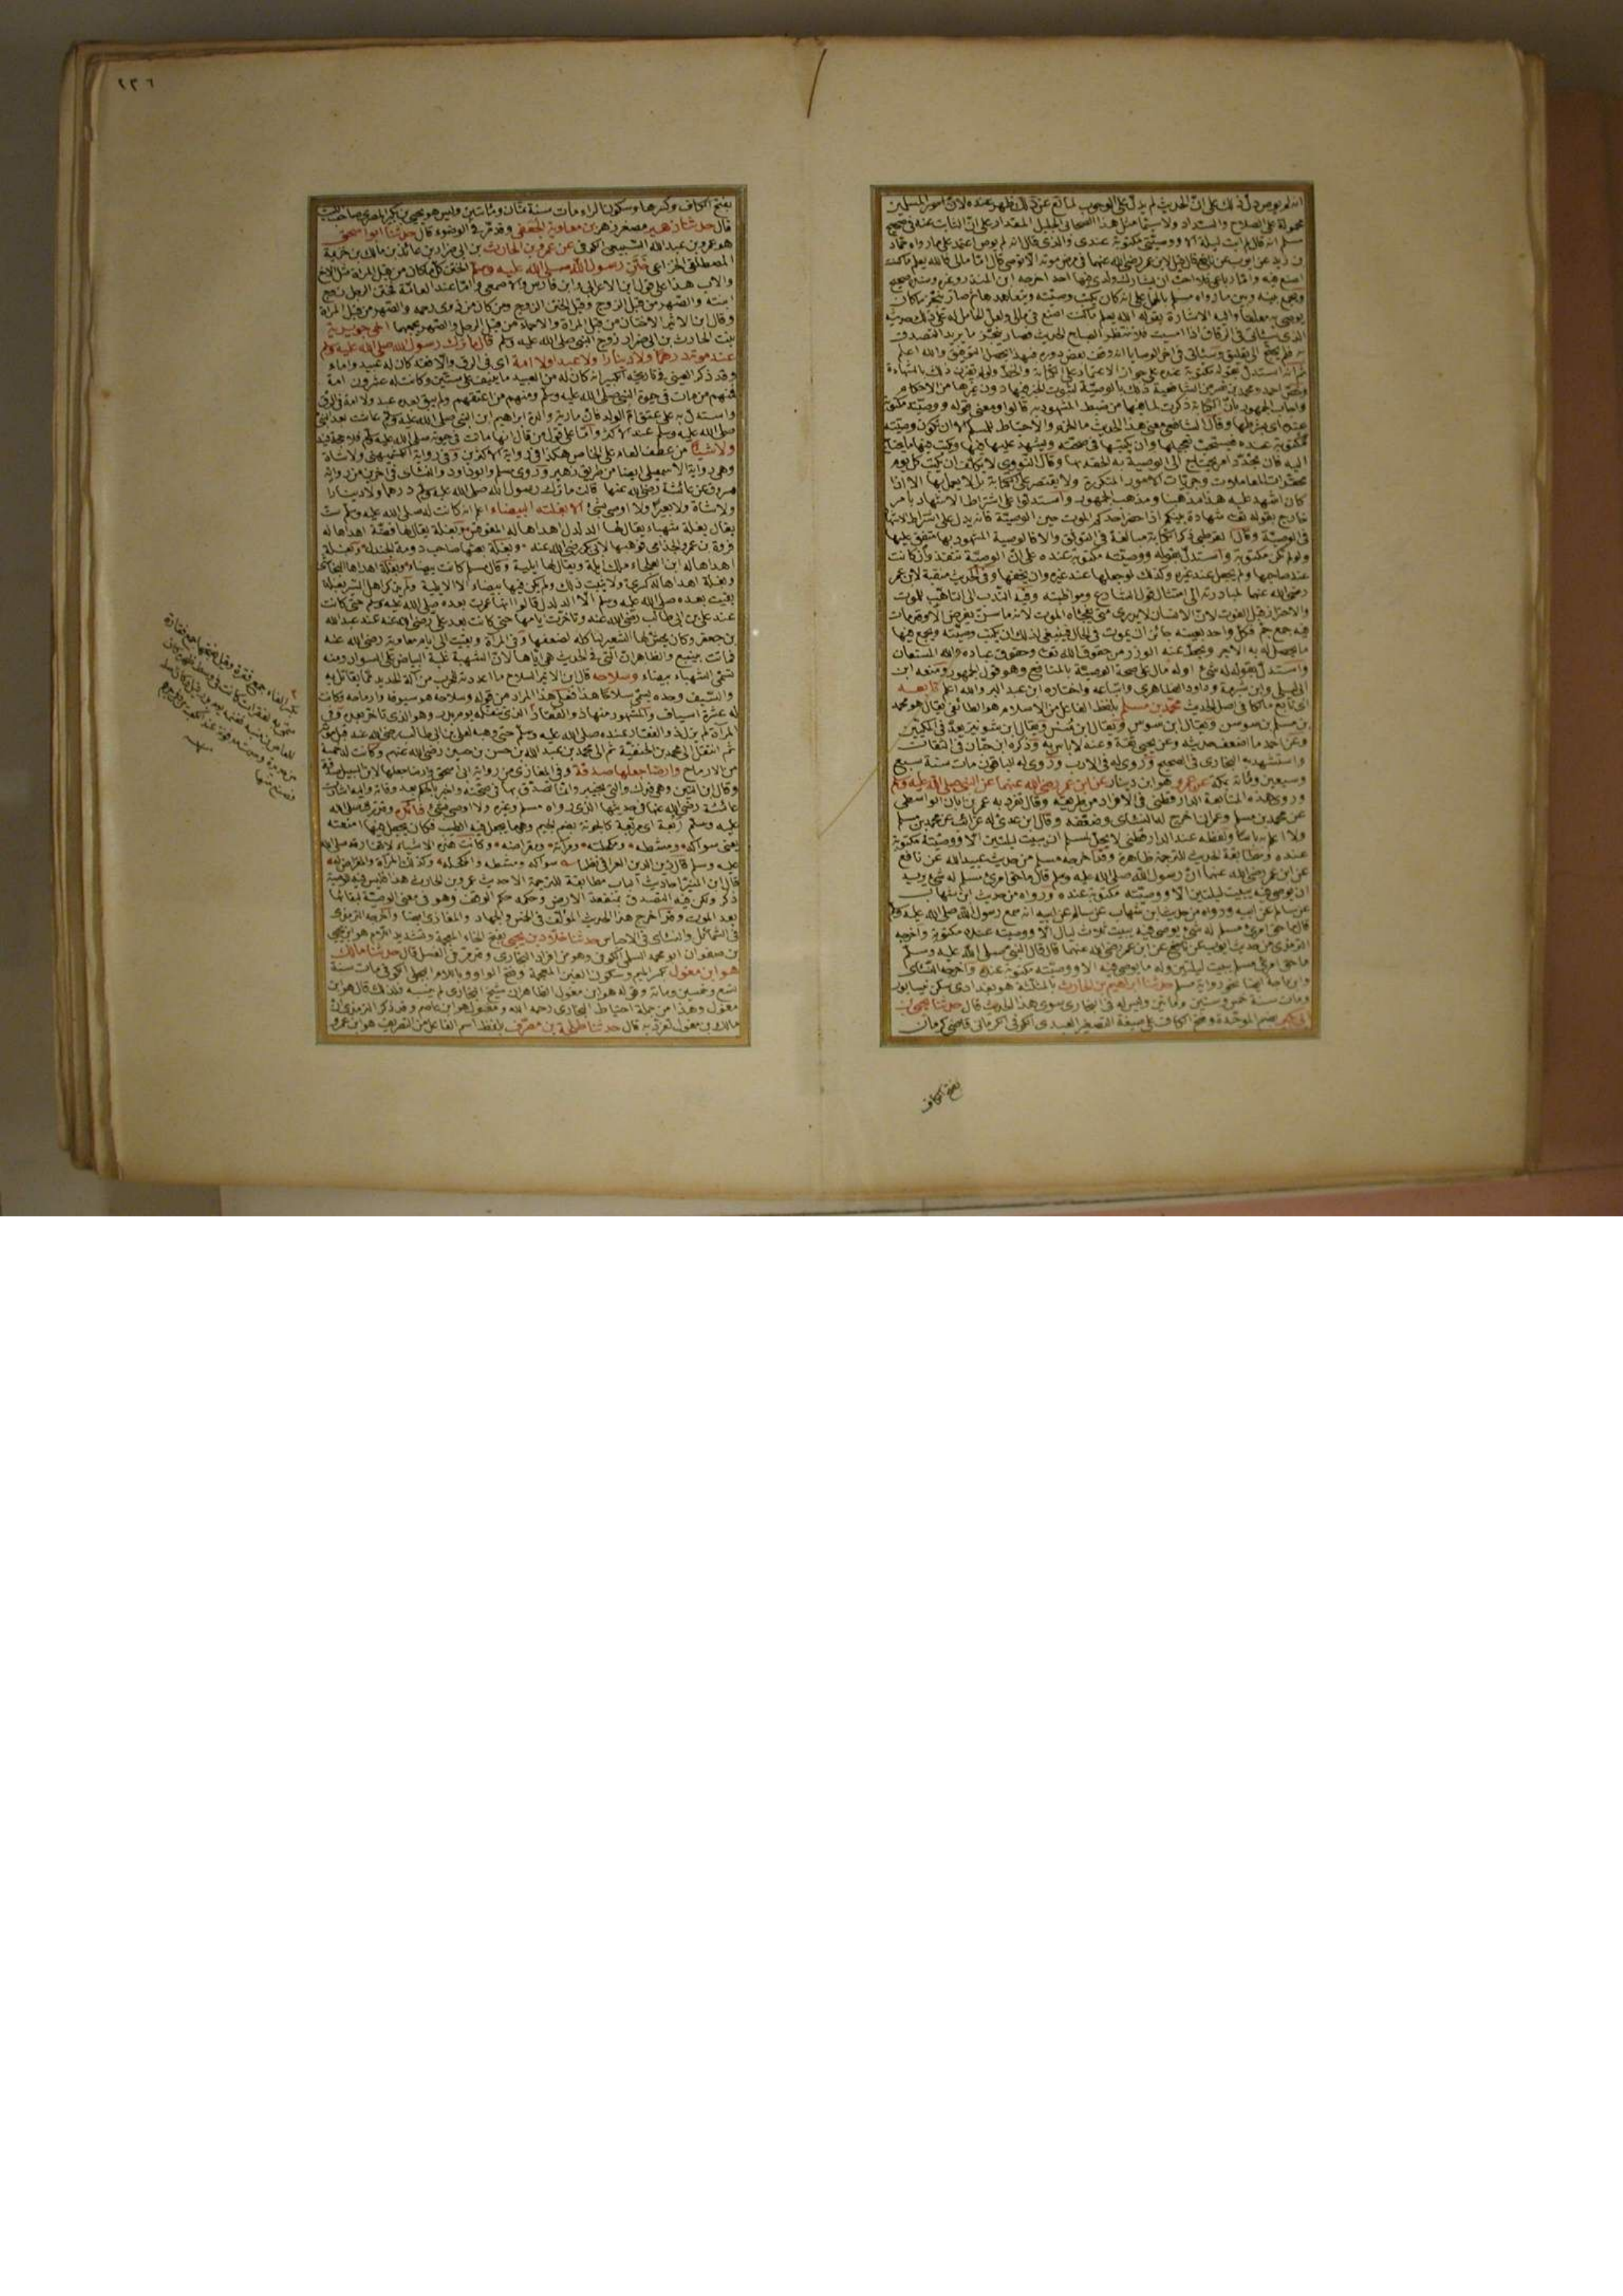 ٢٣٦
انه لم يوص دلّ ذلك على انّ الحديث لم يدل على الوجوب لمانع عن ذلك ظهر عنده لانّ امور المسلمين
محمولة على الصلاح والسداد ولا سيّما مثل هذا الصحابي الجليل المقدار على انّ الثابت عنه في صحيح
مسلم انه قال لم ابت ليلة الا ووصيّتي مكتوبة عندي والذي قال انه لم يوص اعتمد على ما رواه حماد
بن زيد عن ايوب عن نافع قال قيل لابن عمر رضي الله عنهما في مرض موته الا توصي قال امّا مالي فالله يعلم ما كنت
اصنع فيه وامّا رباعي فلا احبّ ان يشارك ولدي فيها احد اخرجه ابن المنذر وغيره وسنده صحيح
ويجمع بينه وبين ما رواه مسلم بالحمل على انه كان يكتب وصيّته ويتعاهدها ثم صار ينجّز ما كان
يوصي به معلقا واليه الاشارة بقوله الله يعلم ما كنت اصنع في مالي ولعلّ الحامل له على ذلك حديثه
الذي سيأتي في الرقاق اذا امسيت فلا تنتظر الصباح الحديث فصار ينجّز ما يريد التصدق
به فلم يحتج الى تعليق وسيأتي في اخر الوصايا انه وقف بعض دوره فبهذا يحصل التوفيق والله اعلم
ثم انه استدل بقوله مكتوبة عنده على جواز الاعتماد على الكتابة والخطّ ولو لم يقترن ذلك بالشهادة
وخصّ احمد ومحمد بن نصر من الشافعية ذلك بالوصيّة لثبوت الخبر فيها دون غيرها من الاحكام
واجاب الجمهور بانّ الكتابة ذكرت لما فيها من ضبط المشهود به قالوا ومعنى قوله ووصيّته مكتوبة
عنده اي بشرطها وقال الشافعي معنى هذا الحديث ما الحزم والاحتياط للمسلم الا ان تكون وصيّته
مكتوبة عنده فيستحبّ تعجيلها وان يكتبها في صحّته ويشهد عليه فيها ويكتب فيها ما يحتاج
اليه فان تجدّد امر يحتاج الى الوصية به الحقه بها وقال النووي لا يكلّف ان يكتب كل يوم
محقّرات المعاملات وجزئيات الامور المتكررة ولا يقتصر على الكتابة بل لا يعمل بها الا اذا
كان اشهد عليه هذا مذهبنا ومذهب الجمهور واستدلوا على اشتراط الاشهاد بامر
خارج بقوله تعالى شهادة بينكم اذا حضر احدكم الموت حين الوصيّة فانه يدل على اشتراط الاشهاد
في الوصيّة وقال القرطبي ذكر الكتابة مبالغة في التوثق والا فالوصية المشهود بها متفق عليها
ولو لم تكن مكتوبة واستدلّ بقوله ووصيّته مكتوبة عنده على انّ الوصيّة تنفذ وان كانت
عند صاحبها ولم يجعل عند غيره وكذلك لو جعلها عند غيره وان يخفها وفي الحديث منقبة لابن عمر
رضي الله عنهما لمبادرته الى امتثال قول الشارع ومواظبته وفيه الندب الى التأهّب للموت
والاحتراز قبل الفوت لانّ الانسان لا يدري متى يفجأه الموت لانه ما من سنّ يفرض الا وقد مات
فيه جمع جمّ فكل واحد بعينه جائز ان يموت في الحال فينبغي لذلك ان يكتب وصيّته ويجمع فيها
ما يحصل له به الاجر ويحطّ عنه الوزر من حقوق الله تعالى وحقوق عباده والله المستعان
واستدلّ بقوله له شيء او له مال على صحة الوصيّة بالمنافع وهو قول الجمهور ومنعه ابن
ابي ليلى وابن شبرمة وداود الظاهري واتباعه واختاره ابن عبد البر والله اعلم تابعه
اي تابع مالكا في اصل الحديث محمّد بن مسلم بلفظ الفاعل من الاسلام هو الطائفي يقال هو محمد
بن مسلم بن سوسن ويقال ابن سوس ويقال ابن سُنسُن ويقال ابن شونيز يعدّ في المكيّين
وعن احمد ما اضعف حديثه وعن يحيى ثقة وعنه لا باس به وذكره ابن حبّان في الثقات
واستشهد به البخاري في الصحيح وروى له في الادب وروى له الباقون مات سنة سبع
وسبعين ومائة بمكة عن عمرو هو ابن دينار عن ابن عمر رضي الله عنهما عن النبي صلى الله عليه وسلم
وروى هذه المتابعة الدارقطني في الافراد من طريقه وقال تفرّد به عمران بن ابان الواسطي
عن محمد بن مسلم وعمران اخرج له النسائي وضعّفه وقال ابن عدي له غرائب عن محمد بن مسلم
ولا اعلم به باسا ولفظه عند الدارقطني لا يحلّ لمسلم ان يبيت ليلتين الّا ووصيّته مكتوبة
عنده ومطابقة الحديث للترجمة ظاهرة وقد اخرجه مسلم من حديث عبيد الله عن نافع
عن ابن عمر رضي الله عنهما انّ رسول الله صلى الله عليه وسلم قال ما حقّ امرئ مسلم له شيء يريد
ان يوصي فيه يبيت ليلتين الّا ووصيّته مكتوبة عنده ورواه من حديث ابن شهاب
عن سالم عن ابيه ورواه من حديث ابن شهاب عن سالم عن ابيه انه سمع رسول الله صلى الله عليه وسلم
قال ما حق امرئ مسلم له شيء يوصي فيه يبيت ثلاث ليال الّا ووصيته عنده مكتوبة واخرجه
الترمذي من حديث ايوب عن نافع عن ابن عمر رضي الله عنهما قال قال النبي صلى الله عليه وسلم
ما حق امرئ مسلم يبيت ليلتين وله ما يوصي فيه الا ووصيّته مكتوبة عنده واخرجه النسائي
وابن ماجة ايضا نحو رواية مسلم حدثنا ابراهيم بن الحارث بالمثلثة هو بغدادي سكن نيسابور
ومات سنة خمس وستين ومائتين وليس له في البخاري سوى هذا الحديث قال حدثنا يحيى بن
ابي بكير بضم الموحّدة وفتح الكاف على صيغة التصغير العبدي الكوفي الكرماني قاضي كرمان
بفتح الكاف
بفتح الكاف وكسرها وسكون الراء مات سنة ثمان ومائتين وليس هو يحيى بن بكير المصري صاحب الليث
قال حدثنا زهير مصغر زهر بن معاوية الجعفي وقد مرّ في الوضوء قال حدّثنا ابو اسحق
هو عمرو بن عبد الله السبيعي الكوفي عن عمرو بن الحارث بن ابي ضرار بن عائذ بن مالك بن خزيمة
المصطلقي الخزاعي خَتَنِ رسول الله صلى الله عليه وسلم الختن كلّ من كان من قبل المرأة مثل الاخ
والاب هذا على قول ابن الاعرابي وابن فارس والاصمعي وامّا عند العامّة فختن الرجل زوج
ابنته والصهر من قبل الزوج وقيل الختن الزوج ومن كان من ذوي رحمه والصهر من قبل المرأة
وقال ابن الاثير الاختان من قبل المرأة والاحماء من قبل الرجل والصهر يجمعهما اخي جويرية
بنت الحارث بن ابي ضرار زوج النبي صلى الله عليه وسلم قال ما ترك رسول الله صلى الله عليه وسلم
عند موته درهما ولا دينارا ولا عبدا ولا امة اي في الرق والّا فقد كان له عبيد واماء
وقد ذكر العيني في تاريخه الكبير انه كان له من العبيد ما ينيف على ستين وكانت له عشرون امة
فمنهم من مات في حيوة النبي صلى الله عليه وسلم ومنهم من اعتقهم ولم يبق بعده عبد ولا امة في الرق
واستدل به على عتق امّ الولد فانّ مارية والدة ابراهيم ابن النبي صلى الله عليه وسلم عاشت بعد النبي
صلى الله عليه وسلم عند الاكثر وامّا على قول من قال انها ماتت في حيوته صلى الله عليه وسلم فلا حجة فيه
ولا شيئًا من عطف العام على الخاص هكذا في رواية الاكثرين وفي رواية الكشميهني ولا شاة
وهي رواية الاسمعيلي ايضا من طريق زهير وروى مسلم وابو داود والنسائي في اخرين من رواية
مسروق عن عائشة رضي الله عنها قالت ما ترك رسول الله صلى الله عليه وسلم درهما ولا دينارا
ولا شاة ولا بعيرا ولا اوصى بشيء الا بغلته البيضاء اعلم انه كانت له صلى الله عليه وسلم ستّ
بغال بغلة شهباء يقال لها الدلدل اهداها له المقوقس وبغلة يقال لها فضّة اهداها له
فروة بن عمرو الجذامي فوهبها لابي بكر رضي الله عنه وبغلة بعثها صاحب دومة الجندل وبغلة
اهداها له ابن العلماء ملك ايلة ويقال لها ايلية وقال مسلم كانت بيضاء وبغلة اهداها النجاشي
وبغلة اهداها له كسرى ولا يثبت ذلك ولم يكن فيها بيضاء الا الايلية ولم يذكر اهل السير بغلة
بقيت بعده صلى الله عليه وسلم الّا الدلدل قالوا انها عمرت بعده صلى الله عليه وسلم حتى كانت
عند علي بن ابي طالب رضي الله عنه وتأخرت ايامها حتى كانت بعد علي رضي الله عنه عند عبد الله
بن جعفر وكان يجشّ لها الشعير لتأكله لضعفها وفي المرآة وبقيت الى ايام معاوية رضي الله عنه
فماتت بينبع والظاهر انّ التي في الحديث هي اياها لانّ الشهبة غلبة البياض على السواد ومنه
تسمّى الشهباء بيضاء وسلاحه قال ابن الاثير السلاح ما اعددته للحرب من آلة الحديد ممّا يقاتل به
والسّيف وحده يسمّى سلاحًا هذا فعلى هذا المراد من قوله وسلاحه هو سيوفه وارماحه وكانت
له عشرة اسياف والمشهور منها ذو الفقار الذي تنفّله يوم بدر وهو الذي تأخر بعده وفي
المرآة لم يزل ذو الفقار عنده صلى الله عليه وسلم حتى وهبه لعلي بن ابي طالب رضي الله عنه قبل موته
ثم انتقل الى محمد بن الحنفيّة ثم الى محمد بن عبد الله بن حسن بن حسين رضي الله عنهم وكانت له خمسة
من الارماح وارضا جعلها صدقة وفي المغازي من رواية ابي اسحق وارضا جعلها لابن السبيل صدقة
وقال ابن التين وهي فدك والتي بخيبر وانّما تصدّق بها في صحّته واخبر بالحكم بعد وفاته واليه اشارت
عائشة رضي الله عنها في حديثها الذي رواه مسلم وغيره ولا اوصى بشيء
عليه وسلم ربعة اي مربّعة كالجونة بضم الجيم وهي ما يجعل فيه الطيب فكان يجعل فيها امتعته
يعني سواكه ومشطه ومكحلته ومرآته ومقراضه وكانت هذه الاشياء لا تفارقه صلى الله
عليه وسلم
قال ابن المنيّر احاديث الباب مطابقة للترجمة الا حديث عمرو بن الحارث هذا فليس فيه للوصية
ذكر ولكن فيه التصدق بمنفعة الارض وحكمه حكم الوقف وهو في معنى الوصيّة لبقائها
بعد الموت وقد اخرج هذا الحديث المؤلّف في الخمس والجهاد والمغازي ايضا واخرجه الترمذي
في الشمائل والنسائي في الاحباس حدثنا خلّاد بن يحيى بفتح الخاء المعجمة وتشديد اللام هو ابن يحيى
بن صفوان ابو محمد السلمي الكوفي وهو من افراد البخاري وقد مرّ في الغسل قال حدثنا مالك
هو ابن مغول بكسر الميم وسكون الغين المعجمة وفتح الواو وباللام البجلي الكوفي مات سنة
تسع وخمسين ومائة وقوله هو ابن مغول الظاهر ان شيخ البخاري لم ينسبه فلذلك قال هو ابن
مغول وهذا من جملة احتياط البخاري رحمه الله ومغول هو ابن عاصم وقد ذكر الترمذي انّ
مالك بن مغول تفرّد به قال حدثنا طلحة بن مصرّف بلفظ اسم الفاعل من التصريف هو ابن عمرو